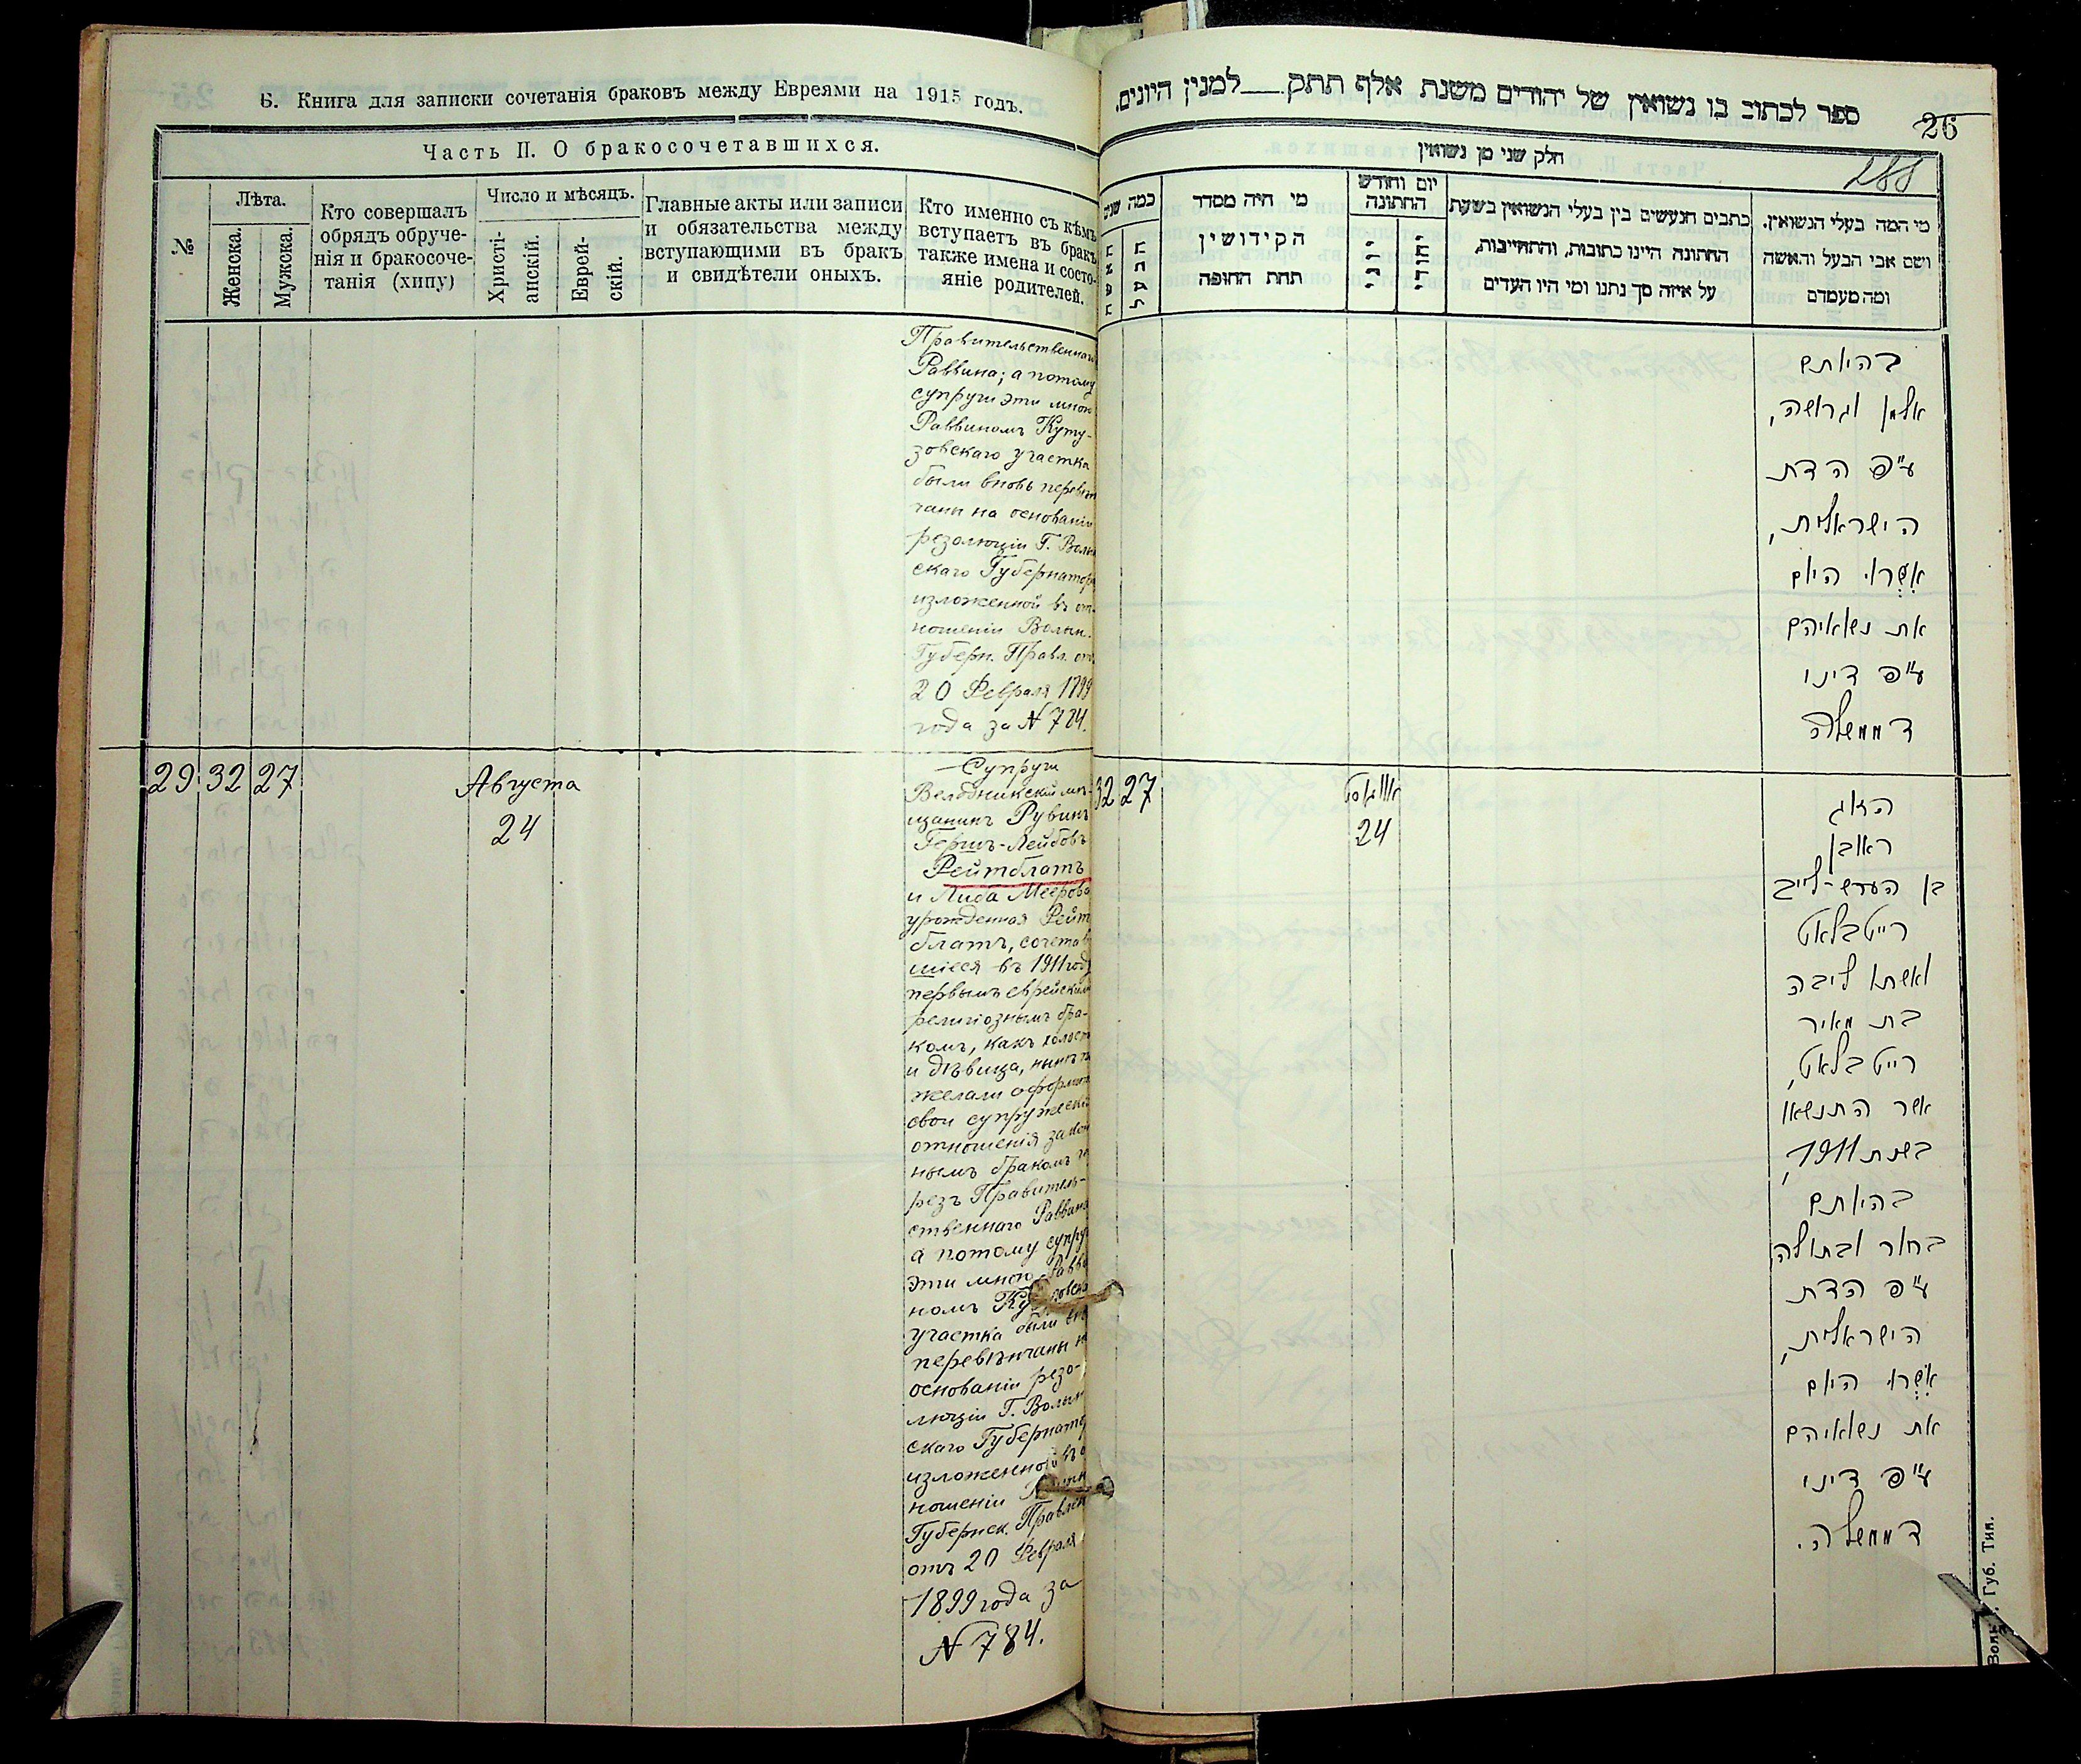 Б. Книга для записки сочетанія браковъ между Евреями на 1915 годъ.
Часть II. О бракосочетавшихся.
№
Лѣта.
Женска.
Мужска.
Кто совершалъ
обрядъ обруче-
нія и бракосоче-
танія (хипу)
Число и мѣсяцъ.
Христі-
анскій.
Еврей-
скій.
Главные акты или записи
и обязательства между
вступающими въ бракъ
и свидѣтели оныхъ.
Кто именно съ кѣмъ
вступаетъ въ бракъ
также имена и состо-
яніе родителей.
Правительственнаго
Раввина; а потому
супруги эти мною
Раввиномъ Куту-
зовскаго участка
были вновь перевѣн
чаны на основаніи
резолюціи Г. Волын
скаго Губернатора
изложенной въ от-
ношеніи Волын.
Губерн. Правл. отъ
20 Февраля 1899
года за № 784.
29 32 27
Августа
24
Супруги
Веледникскій мѣ-
щанинъ Рувинъ
Гершъ-Лейбовъ
Рейтблатъ
и Либа Меерова
урожденная Рейт
блатъ, сочетав
шіеся въ 1911 году
первымъ еврейскимъ
религіознымъ бра-
комъ, какъ холост
и дѣвица, нынѣ по
желали оформить
свои супружескія
отношенія закон
нымъ бракомъ че
резъ Правитель-
ственнаго Раввина
а потому супруги
эти мною Равви
номъ Кутузовска
участка были вно
перевѣнчаны на
основаніи резо-
люціи Г. Волын
скаго Губернатор
изложенной въ о
ношеніи Волын
Губернск. Правлен
отъ 20 Февраля
1899 года за
№ 784.
ספר לכתוב בו נשואין של יהודים משנת אלף תתק___למנין היונים.
26
288
חלק שני מן נשואין
מי המה בעלי הנשואין.
ושם אבי הבעל והאשה
ומה מעמדם
כתבים הנעשים בין בעלי הנשואין בשעת
החתונה היינו כתובות, והתחייבות,
על איזה סך נתנו ומי היו העדים
יום וחודש
החתונה
מי היה מסדר
הקידושין
תחת החופה
כמה שנים
בהיותם
אלמן וגרושה,
ע"פ הדת
הישראלית,
אִשְׁרוּ היום
את נשואיהם
ע"פ דינו
דממשלה
32 27
אווגוסט
24
הזוג
ראובן
בן הערש-לייב
רייטבלאט
ואשתו ליבה
בת מאיר
רייטבלאט,
אשר התנשאו
בשנת 1911,
בהיותם
בחור ובתולה
ע"פ הדת
הישראלית,
אִשְׁרוּ היום
את נשואיהם
ע"פ דינו
דממשלה.
Губ. Тип.